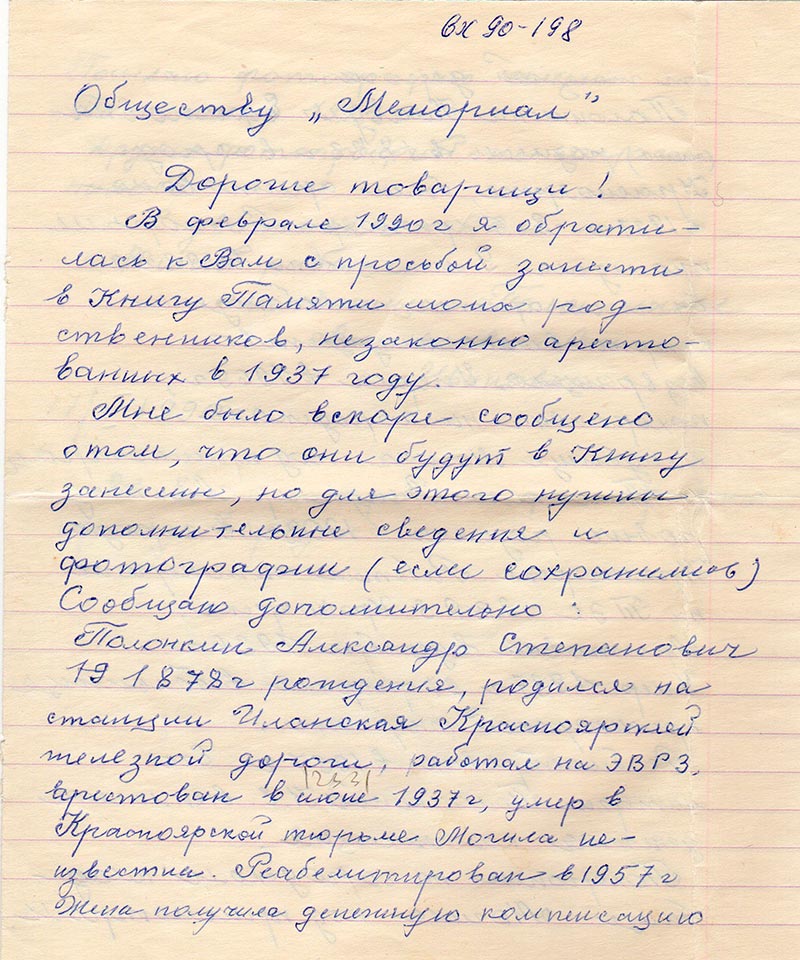 вх 90-198
Обществу „Мемориал"
Дорогие товарищи!
В феврале 1990г я обрати-
лась к Вам с просьбой занести
в Книгу Памяти моих род-
ственников, незаконно аресто-
ванных в 1937 году.
Мне было вскоре сообщено
о том, что они будут в Книгу
занесены, но для этого нужны
дополнительные сведения и
фотографии (если сохранились)
Сообщаю дополнительно:
Полонкин Александр Степанович
1878г рождения, родился на
станции Иланская Красноярской
железной дороги, работал на ЭВРЗ,
арестован в июне 1937г, умер в
Красноярской тюрьме Могила не-
известна. Реабелитирован в 1957г
Жена получила денежную компенсацию